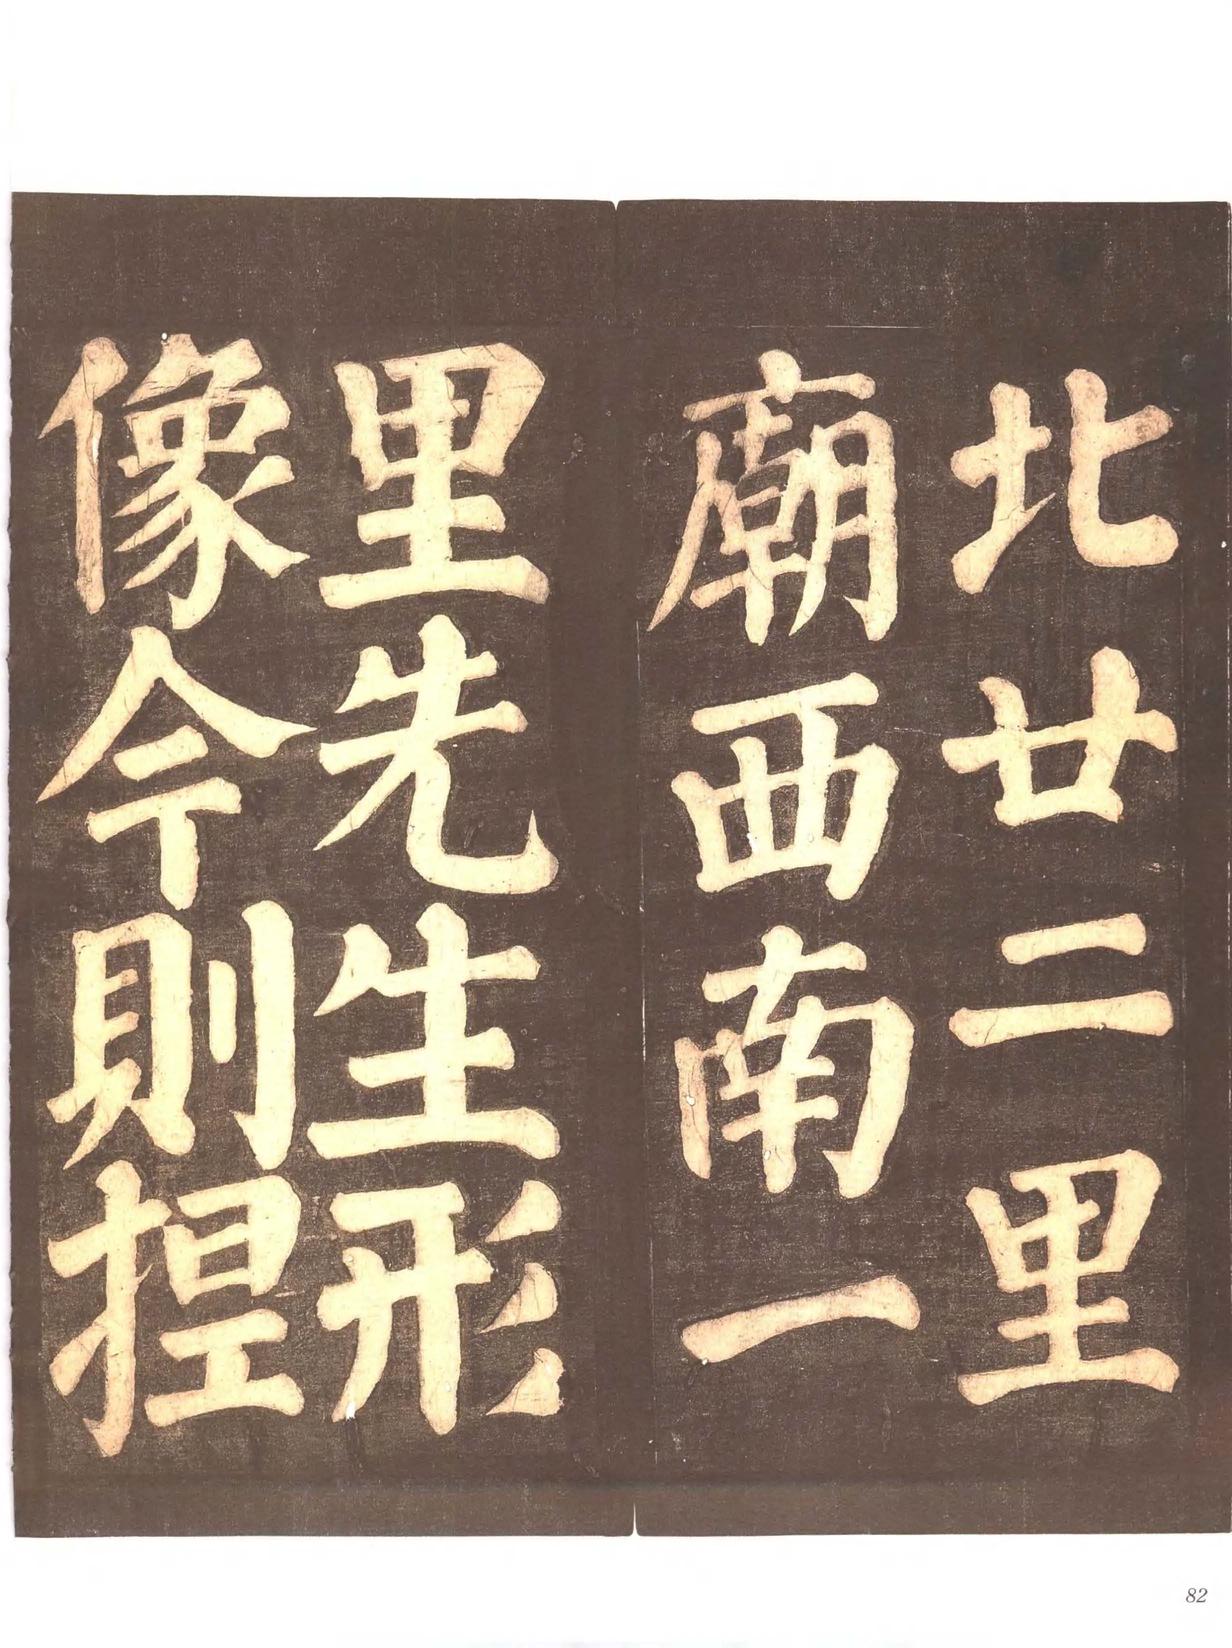 北廿二里
廟西南一
里先生形
像今則捏
82